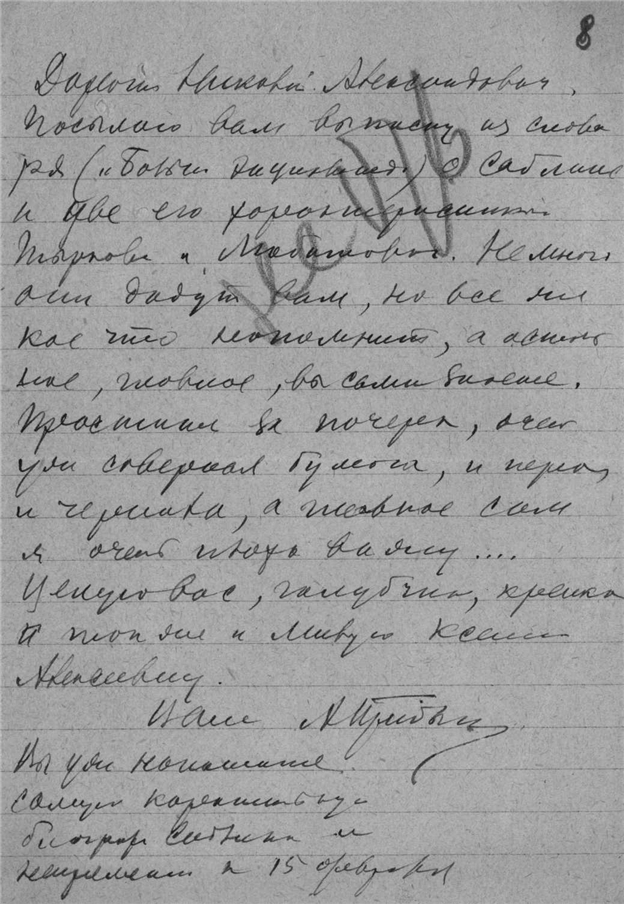 8
Дорогой Николай Александрович,
Посылаю вам выписку из слова
ря ("Больш. энциклопед.") о Саблине
и две его характеристики
Тырковы и Любатович. Немного
они дадут вам, но все же
кое что напомнит, а осталь
ное, главное, вы сами знаете.
Простите за почерк, очен
уж скверная бумага, и перо,
и чернила, а главное сам
я очень плохо вижу....
Целую вас, голубчик, крепко
и также и милую Ксению
Алексеевну.
Ваш А Прибыл
Вы уж напишите
самую коротенькую
биограф Саблина и
непременно к 15 февраля